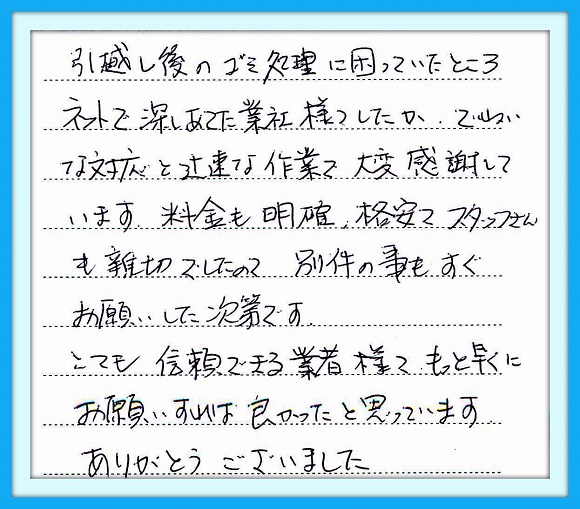 引越し後のゴミ処理に困っていたところ
ネットで深しあてた業社様でしたが、ていねい
な対応と迅速な作業で大変感謝して
います。料金も明確、格安で スタッフさん
も親切でしたので 別件の事もすぐ
お願いした次第です。
とても信頼できる業者様で もっと早くに
お願いすれば良かったと思っています
ありがとうございました